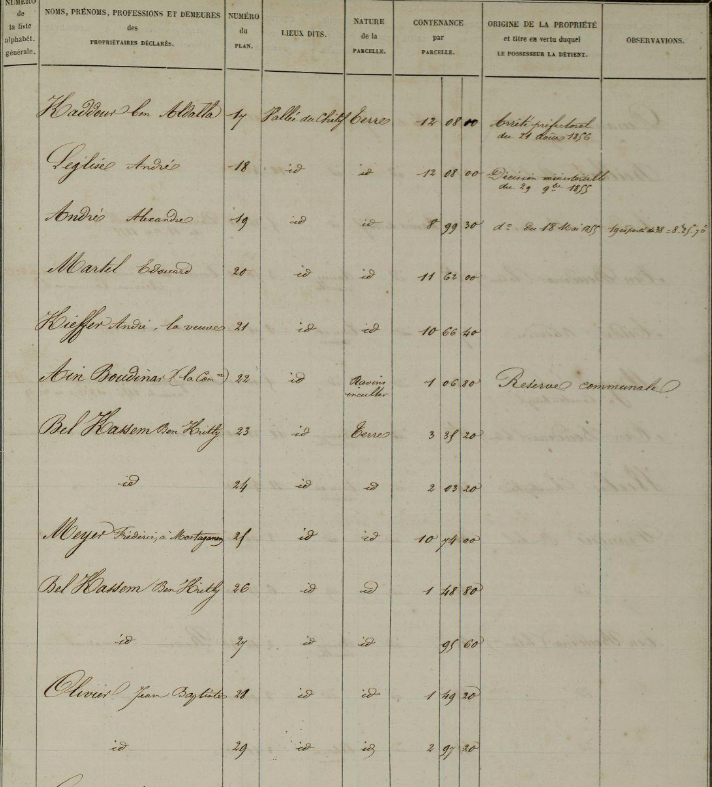 NUMÉRO de la liste alphabét. générale.
NOMS, PRÉNOMS, PROFESSIONS ET DEMEURES des PROPRIÉTAIRES DÉCLARÉS.
NUMÉRO du PLAN.
LIEUX DITS.
NATURE de la PARCELLE.
CONTENANCE par PARCELLE.
ORIGINE DE LA PROPRIÉTÉ et titre en vertu duquel LE POSSESSEUR LA DÉTIENT.
OBSERVATIONS.
Kaddour ben Abdalla 17 Vallée du Chélif Terre 12 08 00 Arrêté préfectoral du 21 août 1856
Léglise André 18 id id 12 08 00 Décision ministérielle du 29 9bre 1855
André Alexandre 19 id id 8 99 30 do du 18 Mai 1855
Martel Edouard 20 id id 11 62 00
Kieffer André, la veuve 21 id id 10 66 40
Ain Boudinar (la Comne) 22 id Ravins incultes 1 06 20 Réserve communale
Bel Kassem Ben 23 id Terre 3 35 20
id 24 id id 2 03 20
Meyer Fréderic, à Mostaganem 25 id id 10 74 00
Bel Kassem Ben 26 id id 1 48 80
id 27 id id 95 60
Olivier Jean Baptiste 28 id id 1 49 20
id 29 id id 2 97 20